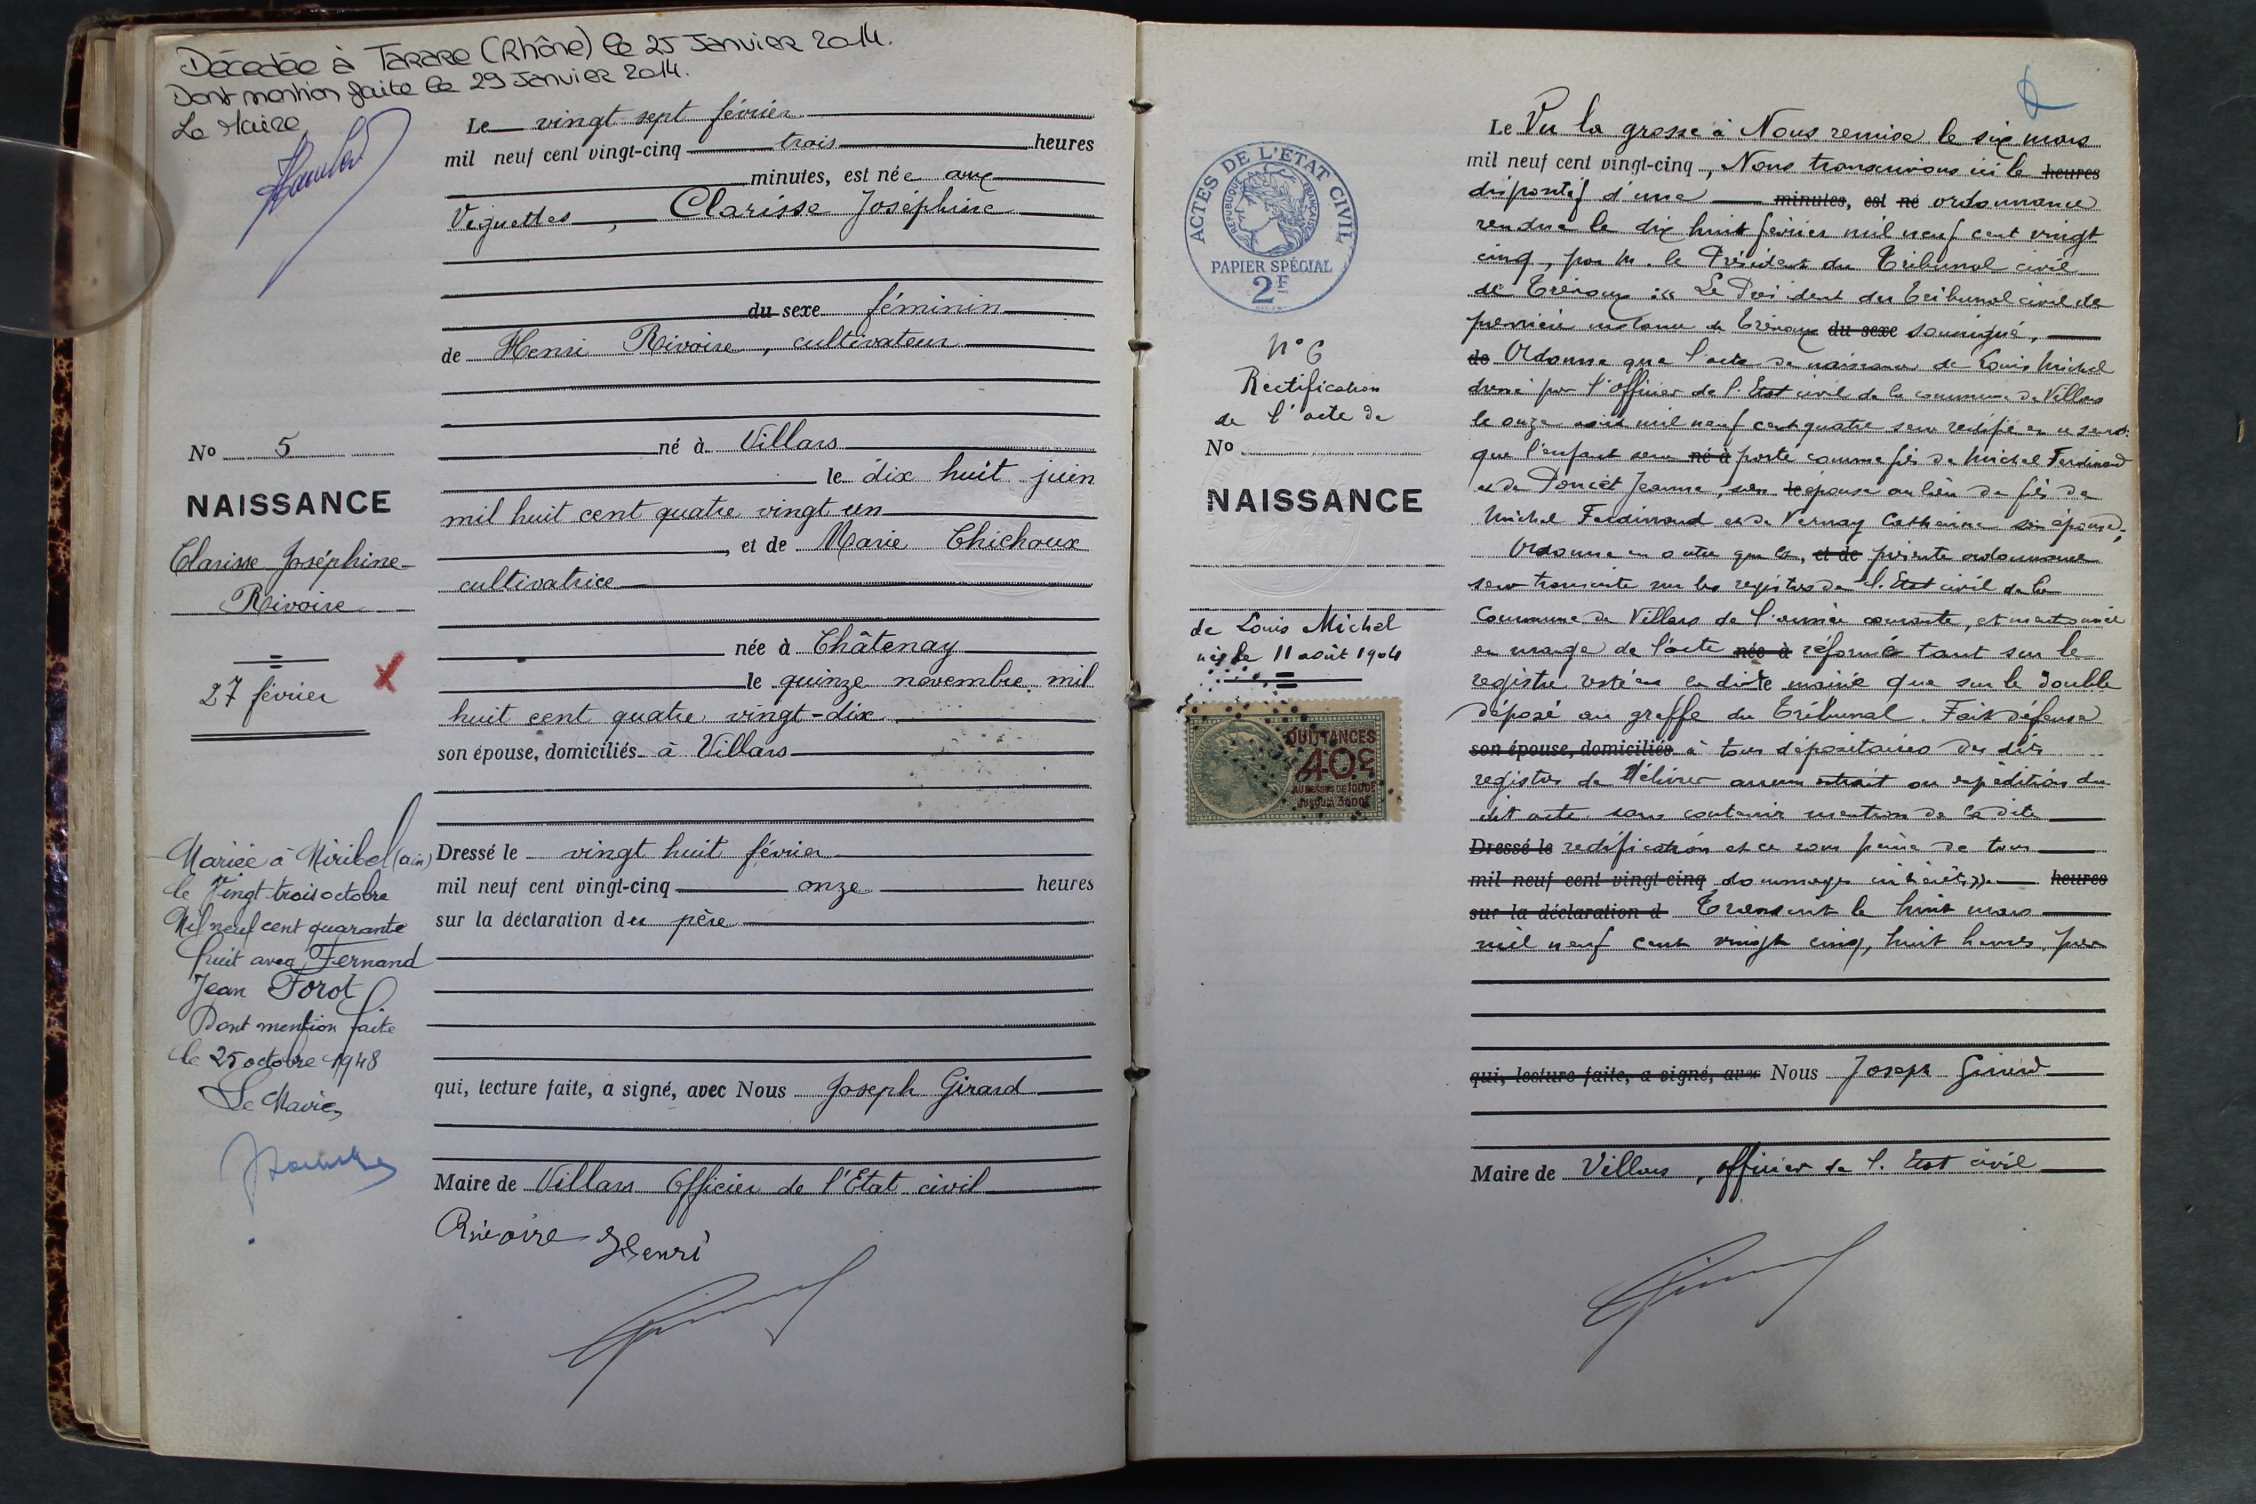 Décédée à Tarare (Rhône) le 25 Janvier 2014.
Dont mention faite le 29 Janvier 2014.
Le Maire
Le vingt-sept février
mil neuf cent vingt-cinq trois heures
minutes, est née aux
Viguettes, Clarisse Joséphine
du sexe féminin
de Henri Rivoire, cultivateur
né à Villars
le dix huit juin
mil huit cent quatre vingt un
, et de Marie Chichoux
cultivatrice
née à Châtenay
le quinze novembre mil
huit cent quatre vingt-dix
son épouse, domiciliés à Villars
Dressé le vingt huit février
mil neuf cent vingt-cinq onze heures
sur la déclaration du père
qui, lecture faite, a signé, avec Nous Joseph Girard
Maire de Villars Officier de l'Etat civil
Rivoire Henri
No 5
NAISSANCE
Clarisse Joséphine
Rivoire
27 février
Mariée à Miribel (ain)
le Vingt-trois octobre
Mil neuf cent quarante
huit avec Fernand
Jean Forot
Dont mention faite
le 25 octobre 1948
Le Maire,
ACTES DE L'ETAT CIVIL
REPUBLIQUE FRANÇAISE
PAPIER SPÉCIAL
2F
N° 6
Rectification
de l'acte de
No
NAISSANCE
de Louis Michel
né le 11 août 1904
QUITTANCES
40c
AU DESSUS DE 1000F
JUSQU'A 3000F
Le Vu la grosse à Nous remise le six mars
mil neuf cent vingt-cinq, Nous transcrivons ici le heures
dispositif d'une minutes, est né ordonnance
rendue le dix huit février mil neuf cent vingt
cinq, par M. le Président du Tribunal civil
de Trévoux : « Le Président du Tribunal civil de
première instance de Trévoux du sexe soussigné,
de Ordonne que l'acte de naissance de Louis Michel
dressé par l'officier de l'Etat civil de la commune de Villars
le onze août mil neuf cent quatre sera rectifié en ce sens
que l'enfant sera né à porté comme fils de Michel Ferdinand
et de Poncet Jeanne, son le épouse au lieu de fils de
Michel Ferdinand et de Vernay Catherine son épouse;
Ordonne en outre que la, et de présente ordonnance
sera transcrite sur les registres de l'Etat civil de la
Commune de Villars de l'année courante, et mentionnée
en marge de l'acte née à réformé tant sur le
registre resté en la dite mairie que sur le double
déposé au greffe du Tribunal. Fait défense
son épouse, domiciliés à tous dépositaires des dits
registres de délivrer aucun extrait ou expédition du
dit acte sans contenir mention de la dite
Dressé le rectification et ce sous peine de tous
mil neuf cent vingt-cinq dommages intérêts ». heures
sur la déclaration d Transcrit le huit mars
mil neuf cent vingt cinq, huit heures, par
qui, lecture faite, a signé, avec Nous Joseph Girard
Maire de Villars, officier de l'Etat civil